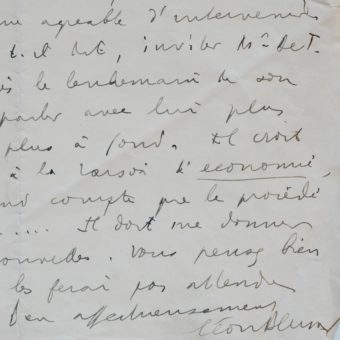 me agréable d'intervenir
t-il dit, inviter Mr De T.
dès le lendemain de son
parler avec lui plus
plus à fond. Il croit
à la raison d'économie,
compte que le procédé
..... Il doit me donner
nouvelles. Vous pensez bien
les ferai pas attendre
affectueusement
Léon Blum